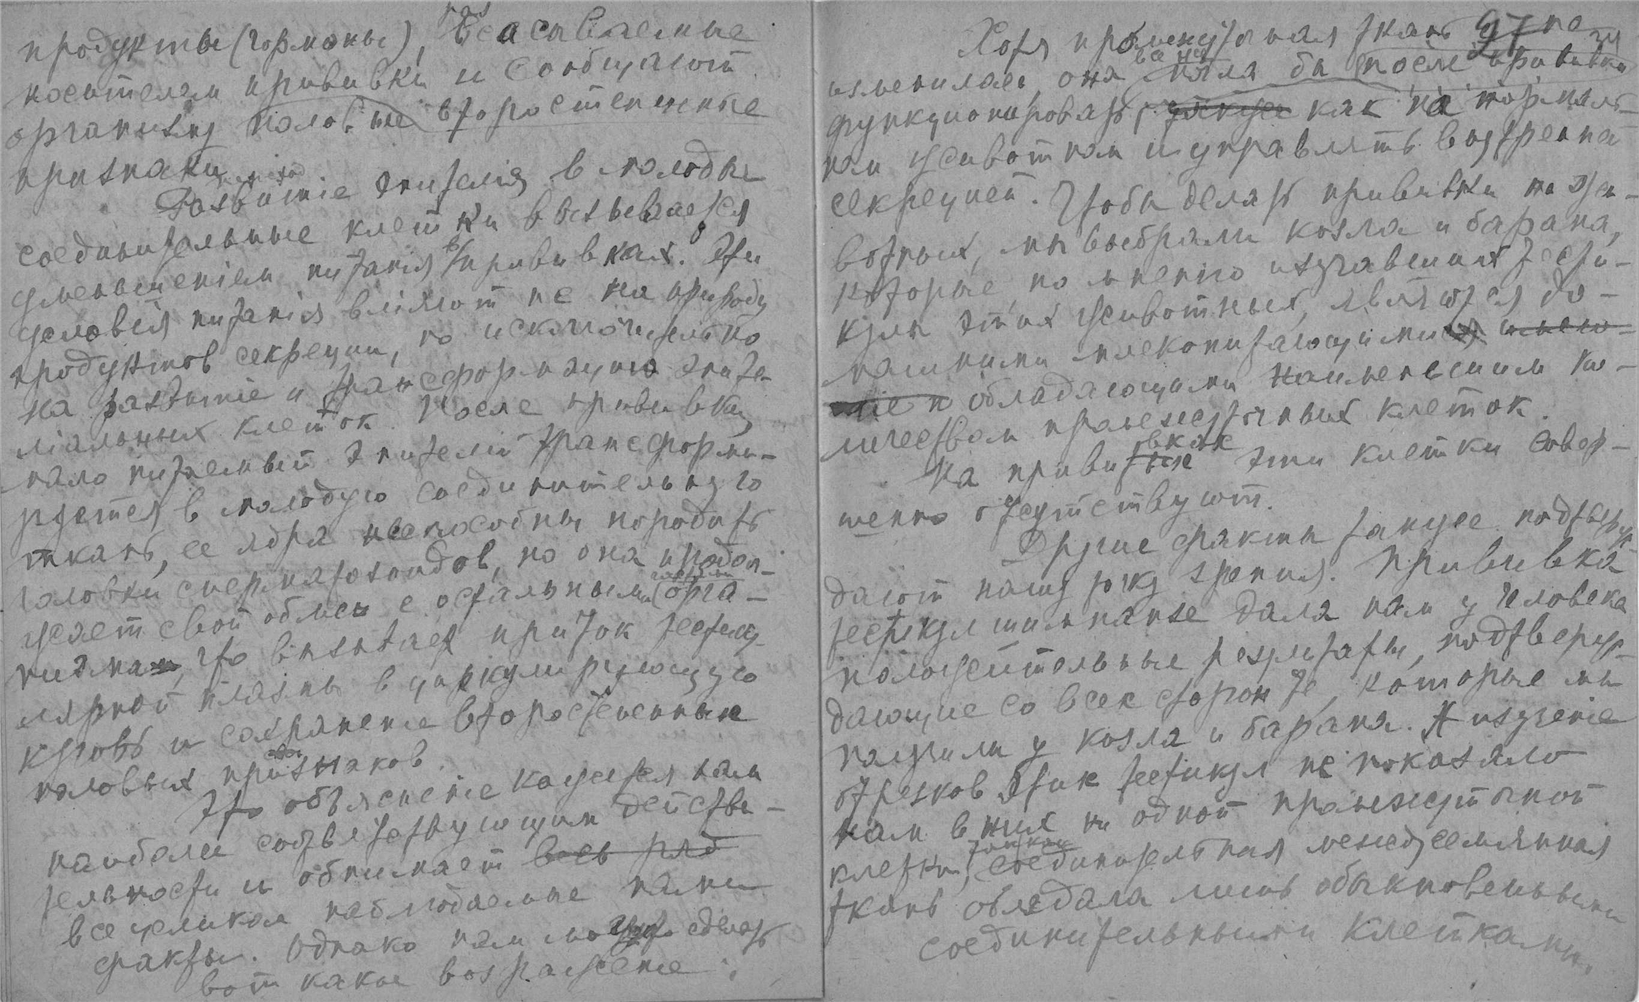 продукты (гормоны), всасываемые
носителем прививки и сообщают
организму половые второстепенные
признаки
Развитие эпителия в молодые
соединительные клетки вызывается
уменьшением питания в прививках. Эти
условия питания влияют не на природу
продуктов секреции, но исключительно
на развитие и трансформацию эпите-
лиальных клеток. После прививки,
мало питаемый эпителий трансформи-
руется в молодую соединительную
ткань, ее ядра неспособны породить
головки сперматозоидов, но она продол-
жает свой обмен с остальными орга-
низма, что вызывает приток тестику-
лярной плазмы в циркулирующую
кровь и сохранение второстепенных
половых признаков.
Это объяснение кажется нам
наиболее соответствующим действи-
тельности и обнимает весь ряд
всецеликом наблюдаемые нами
факты. Однако нам могут сделать
вот какое возражение:
Хотя промежуточная ткань и
изменилась, она могла бы после прививки
функционировать, как на нормаль-
ном животном и управлять внутренней
секрецией. Чтобы делать прививки на жи-
вотных, мы выбрали козла и барана,
которые, по мнению изучавших тести-
кулы этих животных, являются до-
машними млекопитающимися
обладающими наименьшим ко-
личеством промежуточных клеток.
На прививках эти клетки совер-
шенно отсутствуют.
Другие факты также подтверж-
дают нашу точку зрения. Прививка
тестикул шимпанзе дала нам у человека
положительные результаты, подтверж-
дающие со всех сторон те, которые мы
получили у козла и барана. И изучение
отрезков этих тестикул не показало
нам в них ни одной промежуточной
клетки, соединительная межсемянная
ткань обладала лишь обыкновенными
соединительными клетками.